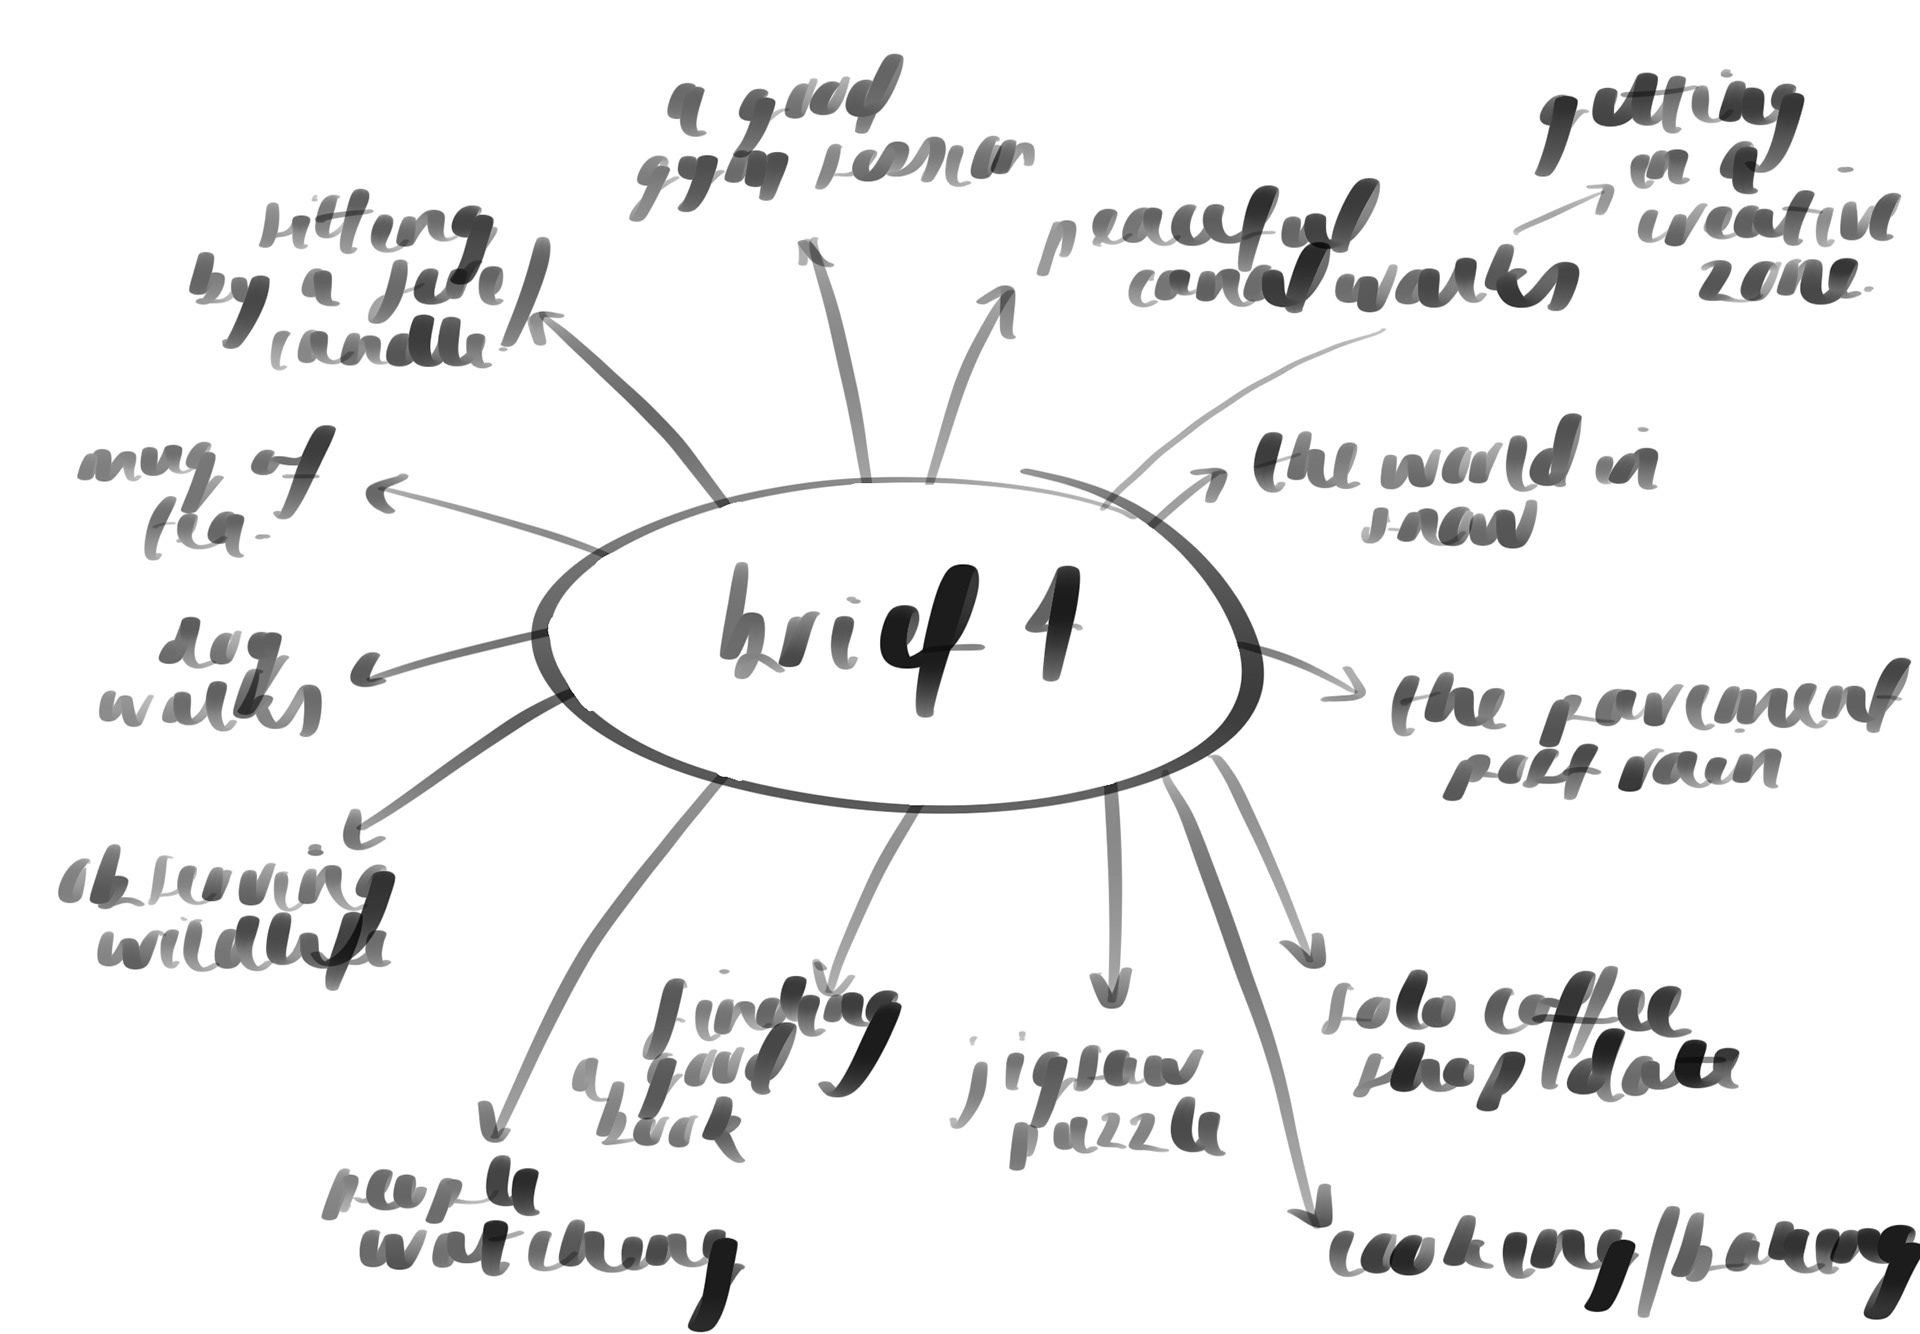 a good
gym session
getting
in a
creative
zone.
sitting
by a fire/
candle.
peaceful
canal walks
mug of
tea.
the world in
snow
brief 1
dog
walks
the pavement
post rain
observing
wildlife
finding
a good
book
jigsaw
puzzle
solo coffee
shop date
people
watching
cooking/baking